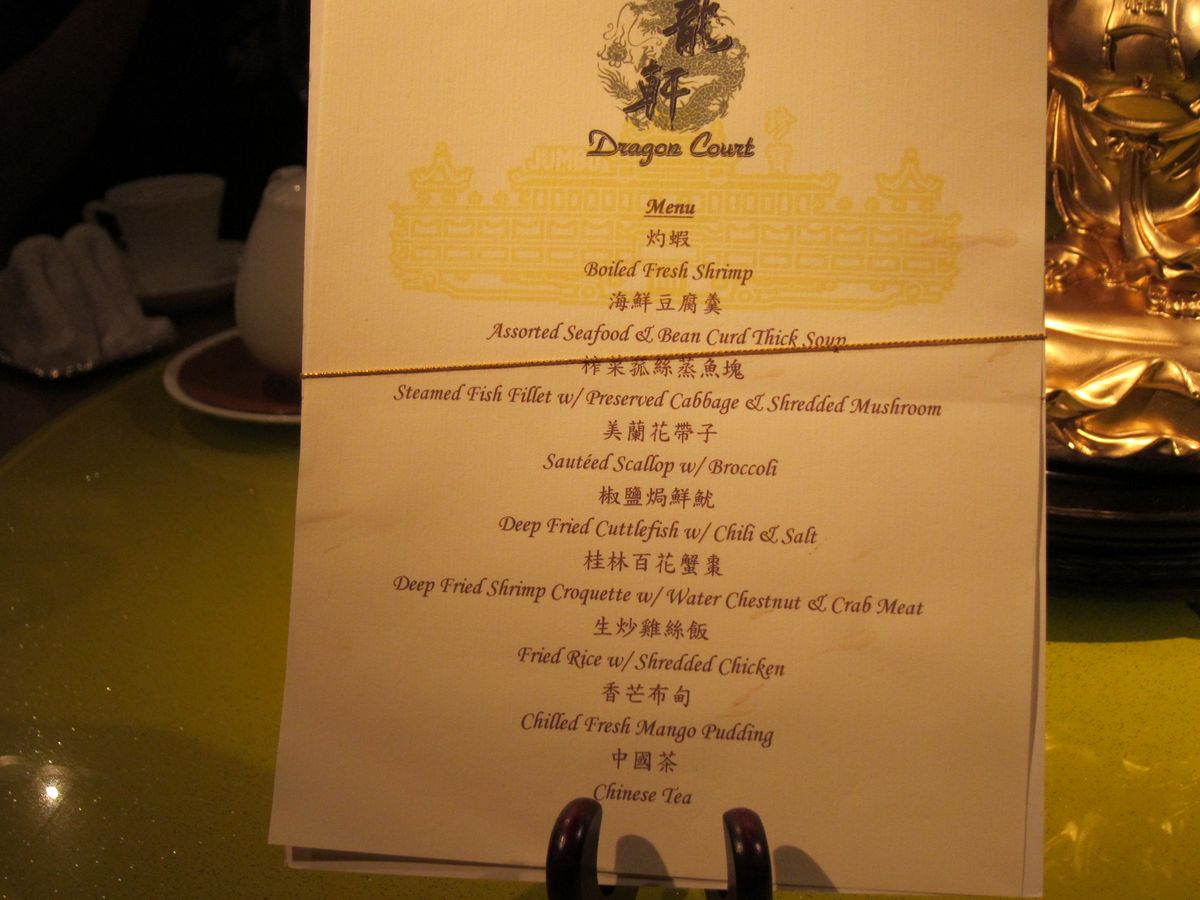 龍
軒
Dragon Court
JUM
珍
寶
Menu
灼蝦
Boiled Fresh Shrimp
海鮮豆腐羹
Assorted Seafood & Bean Curd Thick Soup
榨菜菰絲蒸魚塊
Steamed Fish Fillet w/ Preserved Cabbage & Shredded Mushroom
美蘭花帶子
Sautéed Scallop w/ Broccoli
椒鹽焗鮮魷
Deep Fried Cuttlefish w/ Chili & Salt
桂林百花蟹棗
Deep Fried Shrimp Croquette w/ Water Chestnut & Crab Meat
生炒雞絲飯
Fried Rice w/ Shredded Chicken
香芒布甸
Chilled Fresh Mango Pudding
中國茶
Chinese Tea